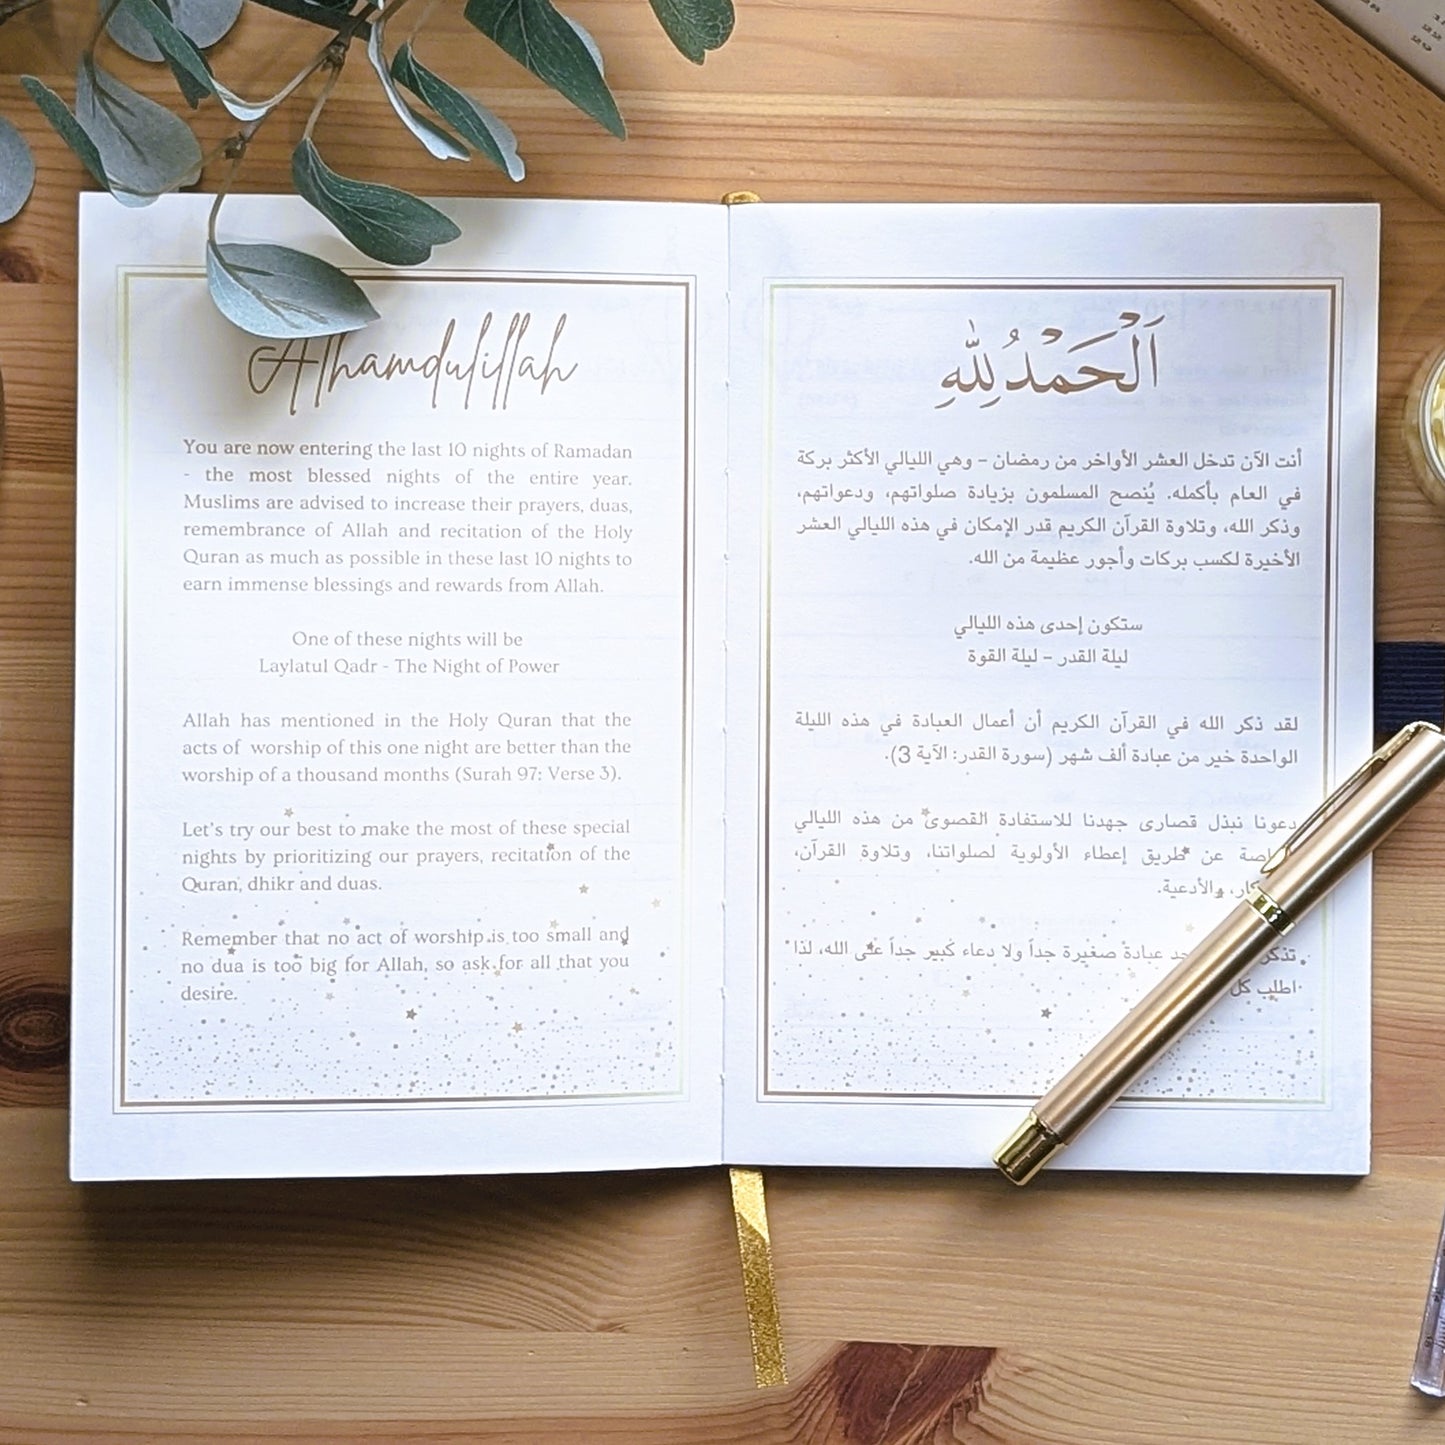 Alhamdulillah
You are now entering the last 10 nights of Ramadan
- the most blessed nights of the entire year.
Muslims are advised to increase their prayers, duas,
remembrance of Allah and recitation of the Holy
Quran as much as possible in these last 10 nights to
earn immense blessings and rewards from Allah.
One of these nights will be
Laylatul Qadr - The Night of Power
Allah has mentioned in the Holy Quran that the
acts of worship of this one night are better than the
worship of a thousand months (Surah 97: Verse 3).
Let's try our best to make the most of these special
nights by prioritizing our prayers, recitation of the
Quran, dhikr and duas.
Remember that no act of worship is too small and
no dua is too big for Allah, so ask for all that you
desire.
اَلْحَمْدُ لِلّٰهِ
أنت الآن تدخل العشر الأواخر من رمضان – وهي الليالي الأكثر بركة
في العام بأكمله. يُنصح المسلمون بزيادة صلواتهم، ودعواتهم،
وذكر الله، وتلاوة القرآن الكريم قدر الإمكان في هذه الليالي العشر
الأخيرة لكسب بركات وأجور عظيمة من الله.
ستكون إحدى هذه الليالي
ليلة القدر – ليلة القوة
لقد ذكر الله في القرآن الكريم أن أعمال العبادة في هذه الليلة
الواحدة خير من عبادة ألف شهر (سورة القدر: الآية 3).
دعونا نبذل قصارى جهدنا للاستفادة القصوى من هذه الليالي
عن طريق إعطاء الأولوية لصلواتنا، وتلاوة القرآن،
والأدعية.
عبادة صغيرة جداً ولا دعاء كبير جداً على الله، لذا
اطلب كل